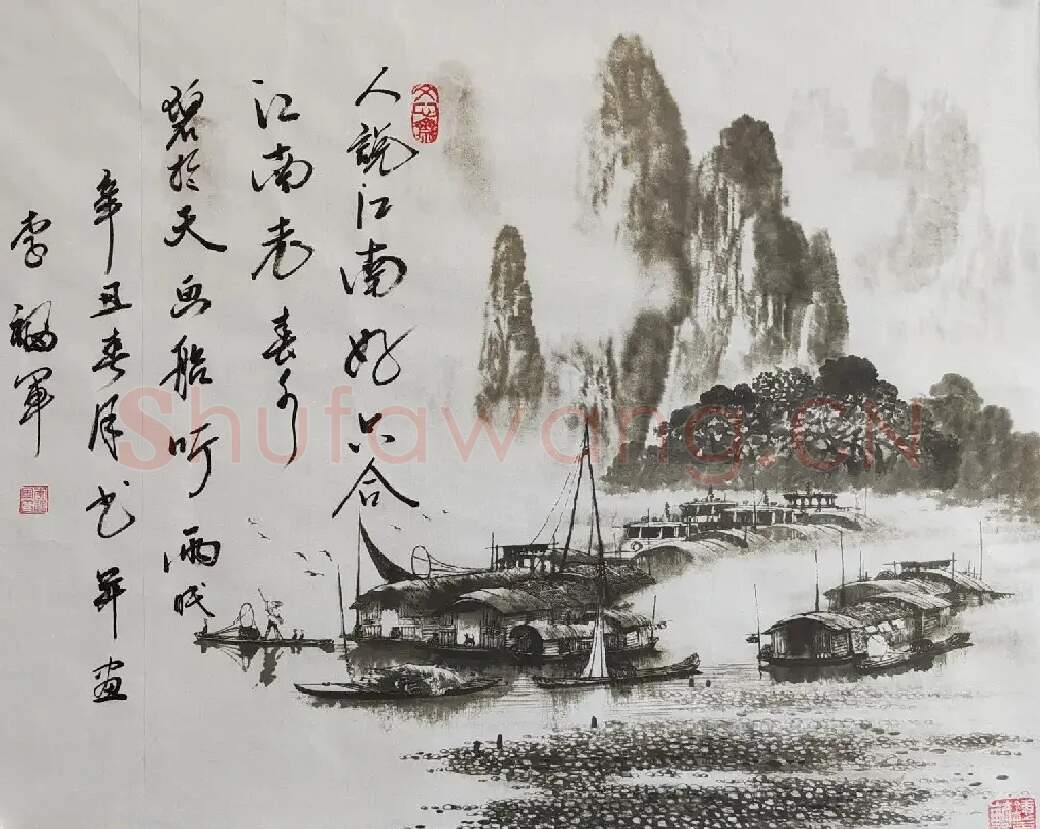 人說江南好只合
江南老春水
碧於天画船听雨眠
辛丑春月书并画
李福軍
Shufawang.CN